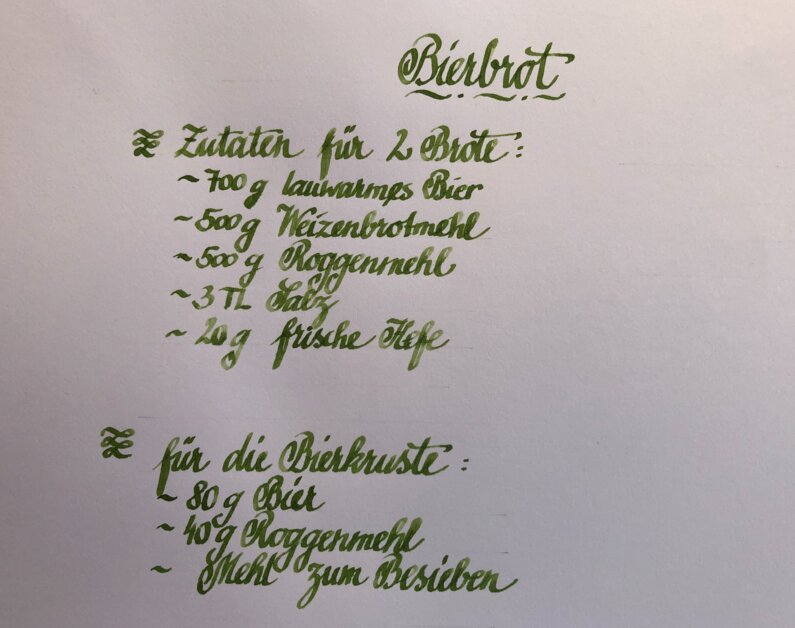 Bierbrot
Zutaten für 2 Brote:
~ 700 g lauwarmes Bier
~ 500 g Weizenbrotmehl
~ 500 g Roggenmehl
~ 3 TL Salz
~ 20 g frische Hefe
für die Bierkruste:
~ 80 g Bier
~ 40 g Roggenmehl
~ Mehl zum Besieben